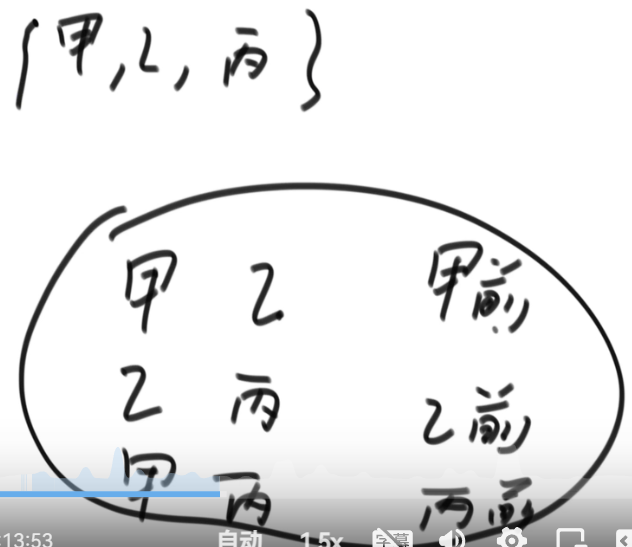 {甲,乙,丙}
甲 乙 甲前
乙 丙 乙前
甲 丙 丙前
13:53 自动 1.5x 字幕